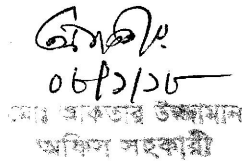 ০৮/১/১৮
মোঃ আকতার উজ্জামান
অফিস সহকারী